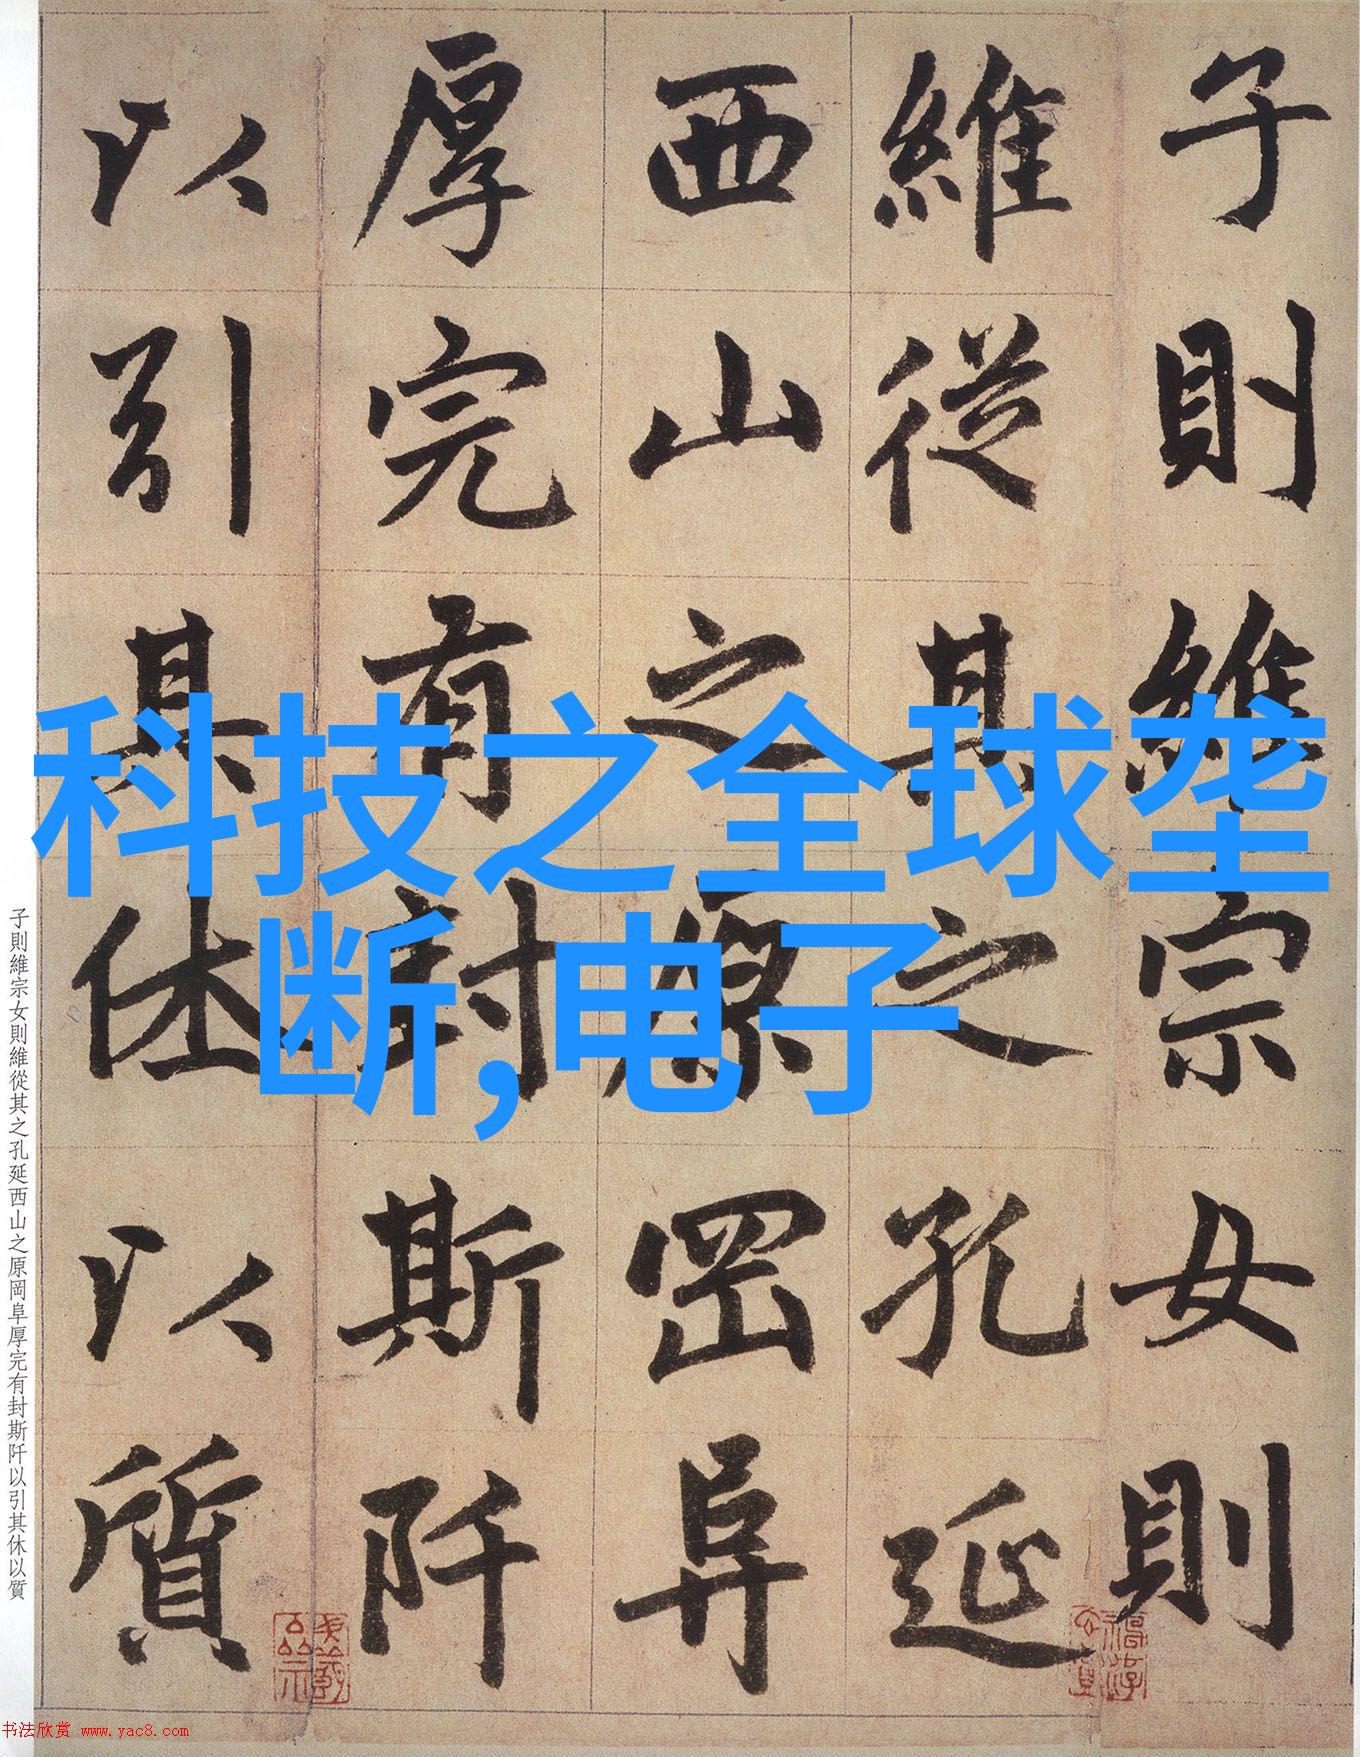 子則維宗女則
維從其之孔延
西山之原岡阜
厚完有封斯阡
以引其休以質
科技之全球垄
断,电子
子則維宗女則維從其之孔延西山之原岡阜厚完有封斯阡以引其休以質
书法欣赏 www.yac8.com